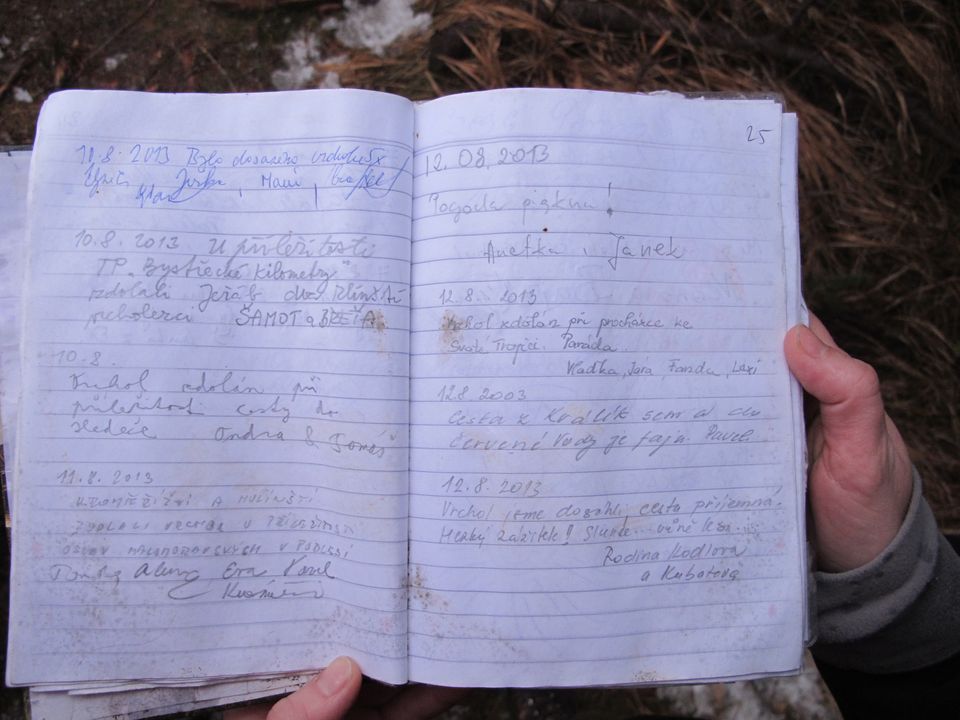 10.8. 2013 Bylo dosaženo vrcholu
Jirka, Mani,
10.8. 2013 U příležitosti
TP „Bystřecké kilometry"
zdolali Jeřáb dva zlínští
ŠAMOT a BREŤA
10.8.
Vrchol zdolán při
příležitosti cesty do
Sledeče Ondra & Tomáš
11.8.2013
KROMĚŘÍŽŠTÍ A HULÍNŠTÍ
ZDOLALI V
OSLAV V PODLESÍ
Alena Eva Karel
25
12.08.2013
Pogoda piękna!
Anetka i Janek
12.8. 2013
Vrchol zdolán při procházce ke
Svaté Trojici. Paráda.
Vlaďka, Jára, Fanda, Lexi
12.8 2003
Cesta z sem a do
Červené Vody je fajn. Pavel
12.8.2013
Vrchol jsme dosáhli, cesta příjemná.
Hezký zážitek! Slunce... vůně lesa...
Rodina Kodlova
a Kubátova